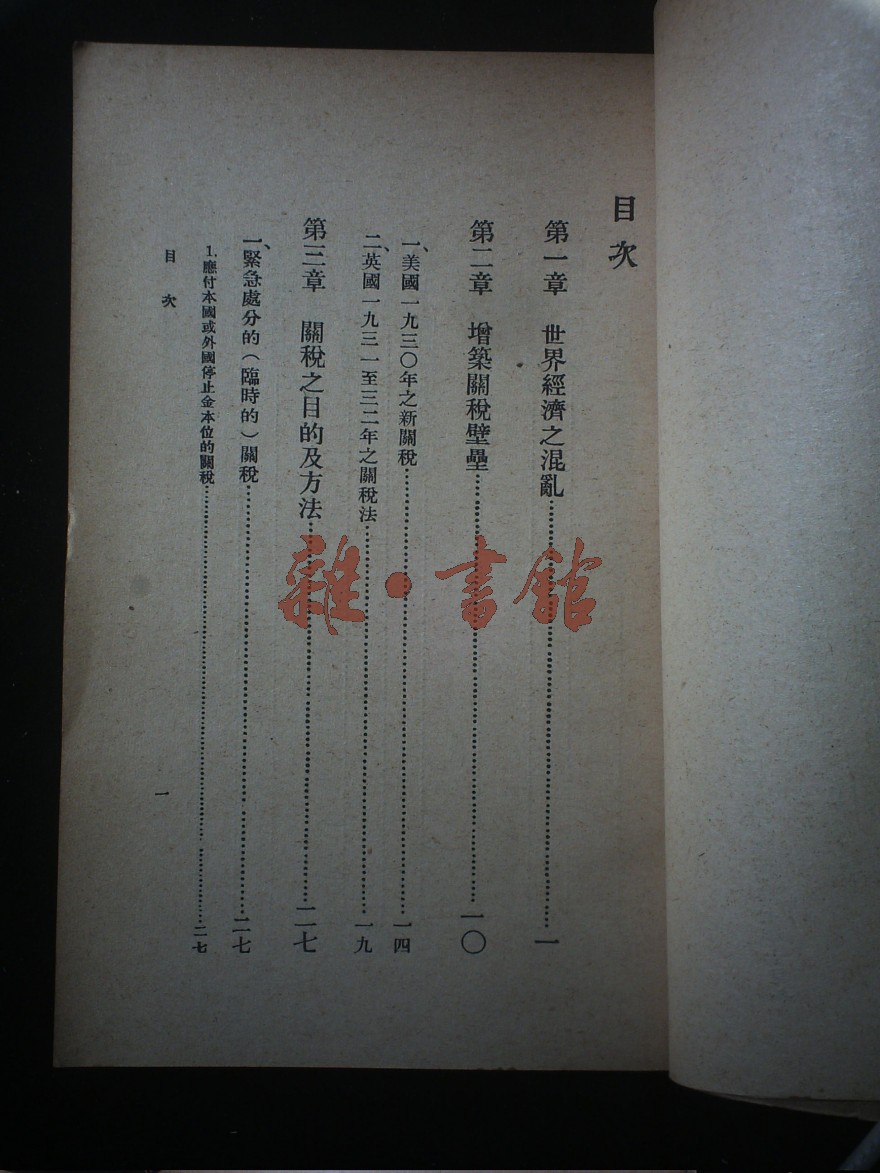 目次
第一章 世界經濟之混亂……一
第二章 增築關稅壁壘……一〇
一、美國一九三〇年之新關稅……一四
二、英國一九三一至三二年之關稅法……一九
第三章 關稅之目的及方法……二七
一、緊急處分的(臨時的)關稅……二七
1.應付本國或外國停止金本位的關稅……二七
目次
一
雜·書館